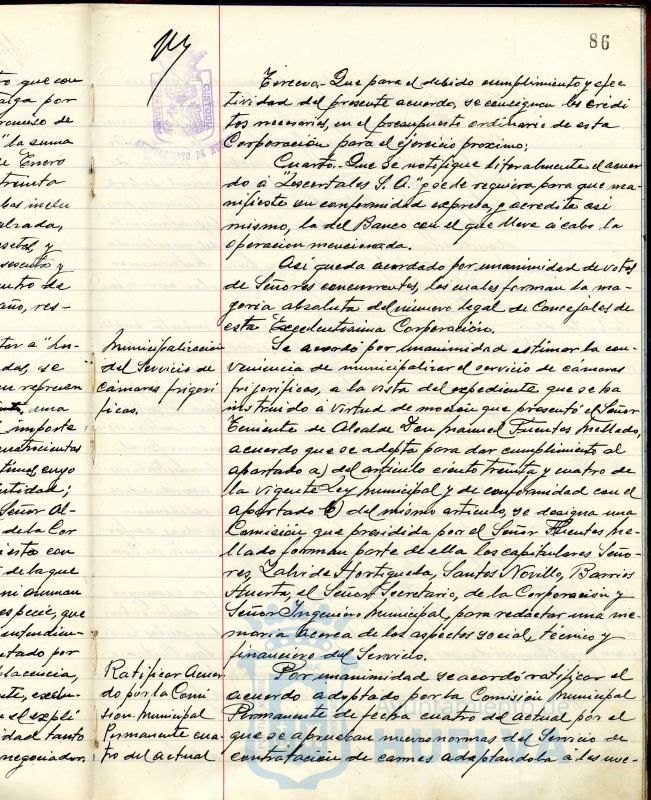 86
Tercero.- Que para el debido cumplimiento y efec
tividad del presente acuerdo, se consignen los crédi
tos necesarios, en el presupuesto ordinario de esta
Corporación para el ejercicio proximo;
Cuarto.- Que se notifique literalmente el acuer
do á "Lascortales S. A." y se le requiera para que ma
nifieste su conformidad expresa, y acredite asi
mismo, la del Banco con el que lleve á cabo la
operacion mencionada.
Asi queda acordado por unanimidad de votos
de Señores concurrentes, los cuales forman la ma-
yoria absoluta del número legal de Concejales de
esta Excelentisima Corporación.
Municipalización
del Servicio de
cámaras frigori
ficas.
Se acordó por unanimidad estimar la con-
veniencia de municipalizar el servicio de cámaras
frigorificas, a la vista del expediente que se ha
instruido á virtud de moción que presentó el Señor
Teniente de Alcalde Don Manuel Fuentes Mellado,
acuerdo que se adopta para dar cumplimiento al
apartado a) del articulo ciento treinta y cuatro de
la vigente Ley Municipal y de conformidad con el
apartado b) del mismo articulo, se designa una
Comisión que presidida por el Señor Fuentes Me-
llado forman parte de ella los capitulares Seño-
res, Zalvide Hortigueta, Santos Novillo, Barrios
Huerta, el Señor Secretario, de la Corporación y
Señor Ingeniero Municipal, para redactar una me-
moria acerca de los aspectos social, técnico y
financiero del Servicio.
Ratificar Acuer
do por la Comi
sion Municipal
Permanente cua-
tro del actual
Por unanimidad se acordó ratificar el
acuerdo adoptado por la Comisión Municipal
Permanente de fecha cuatro del actual por el
que se aprueban nuevas normas del Servicio de
contratación de carnes adaptandola á las nue-
to que con
alga por
"la suma
de Enero
treinta
bas inclu
sesenta y
año, res-
das, se
una
importe
cuatrocientos
tidad;
Señor Al-
de la Cor
de la que
especie, que
entendien-
tado por
nte, exclu-
el expli
idad tanto
negociador.
CUSTODIA
AYUNTAMIENTO DE HU
Ayuntamiento de
HUELVA